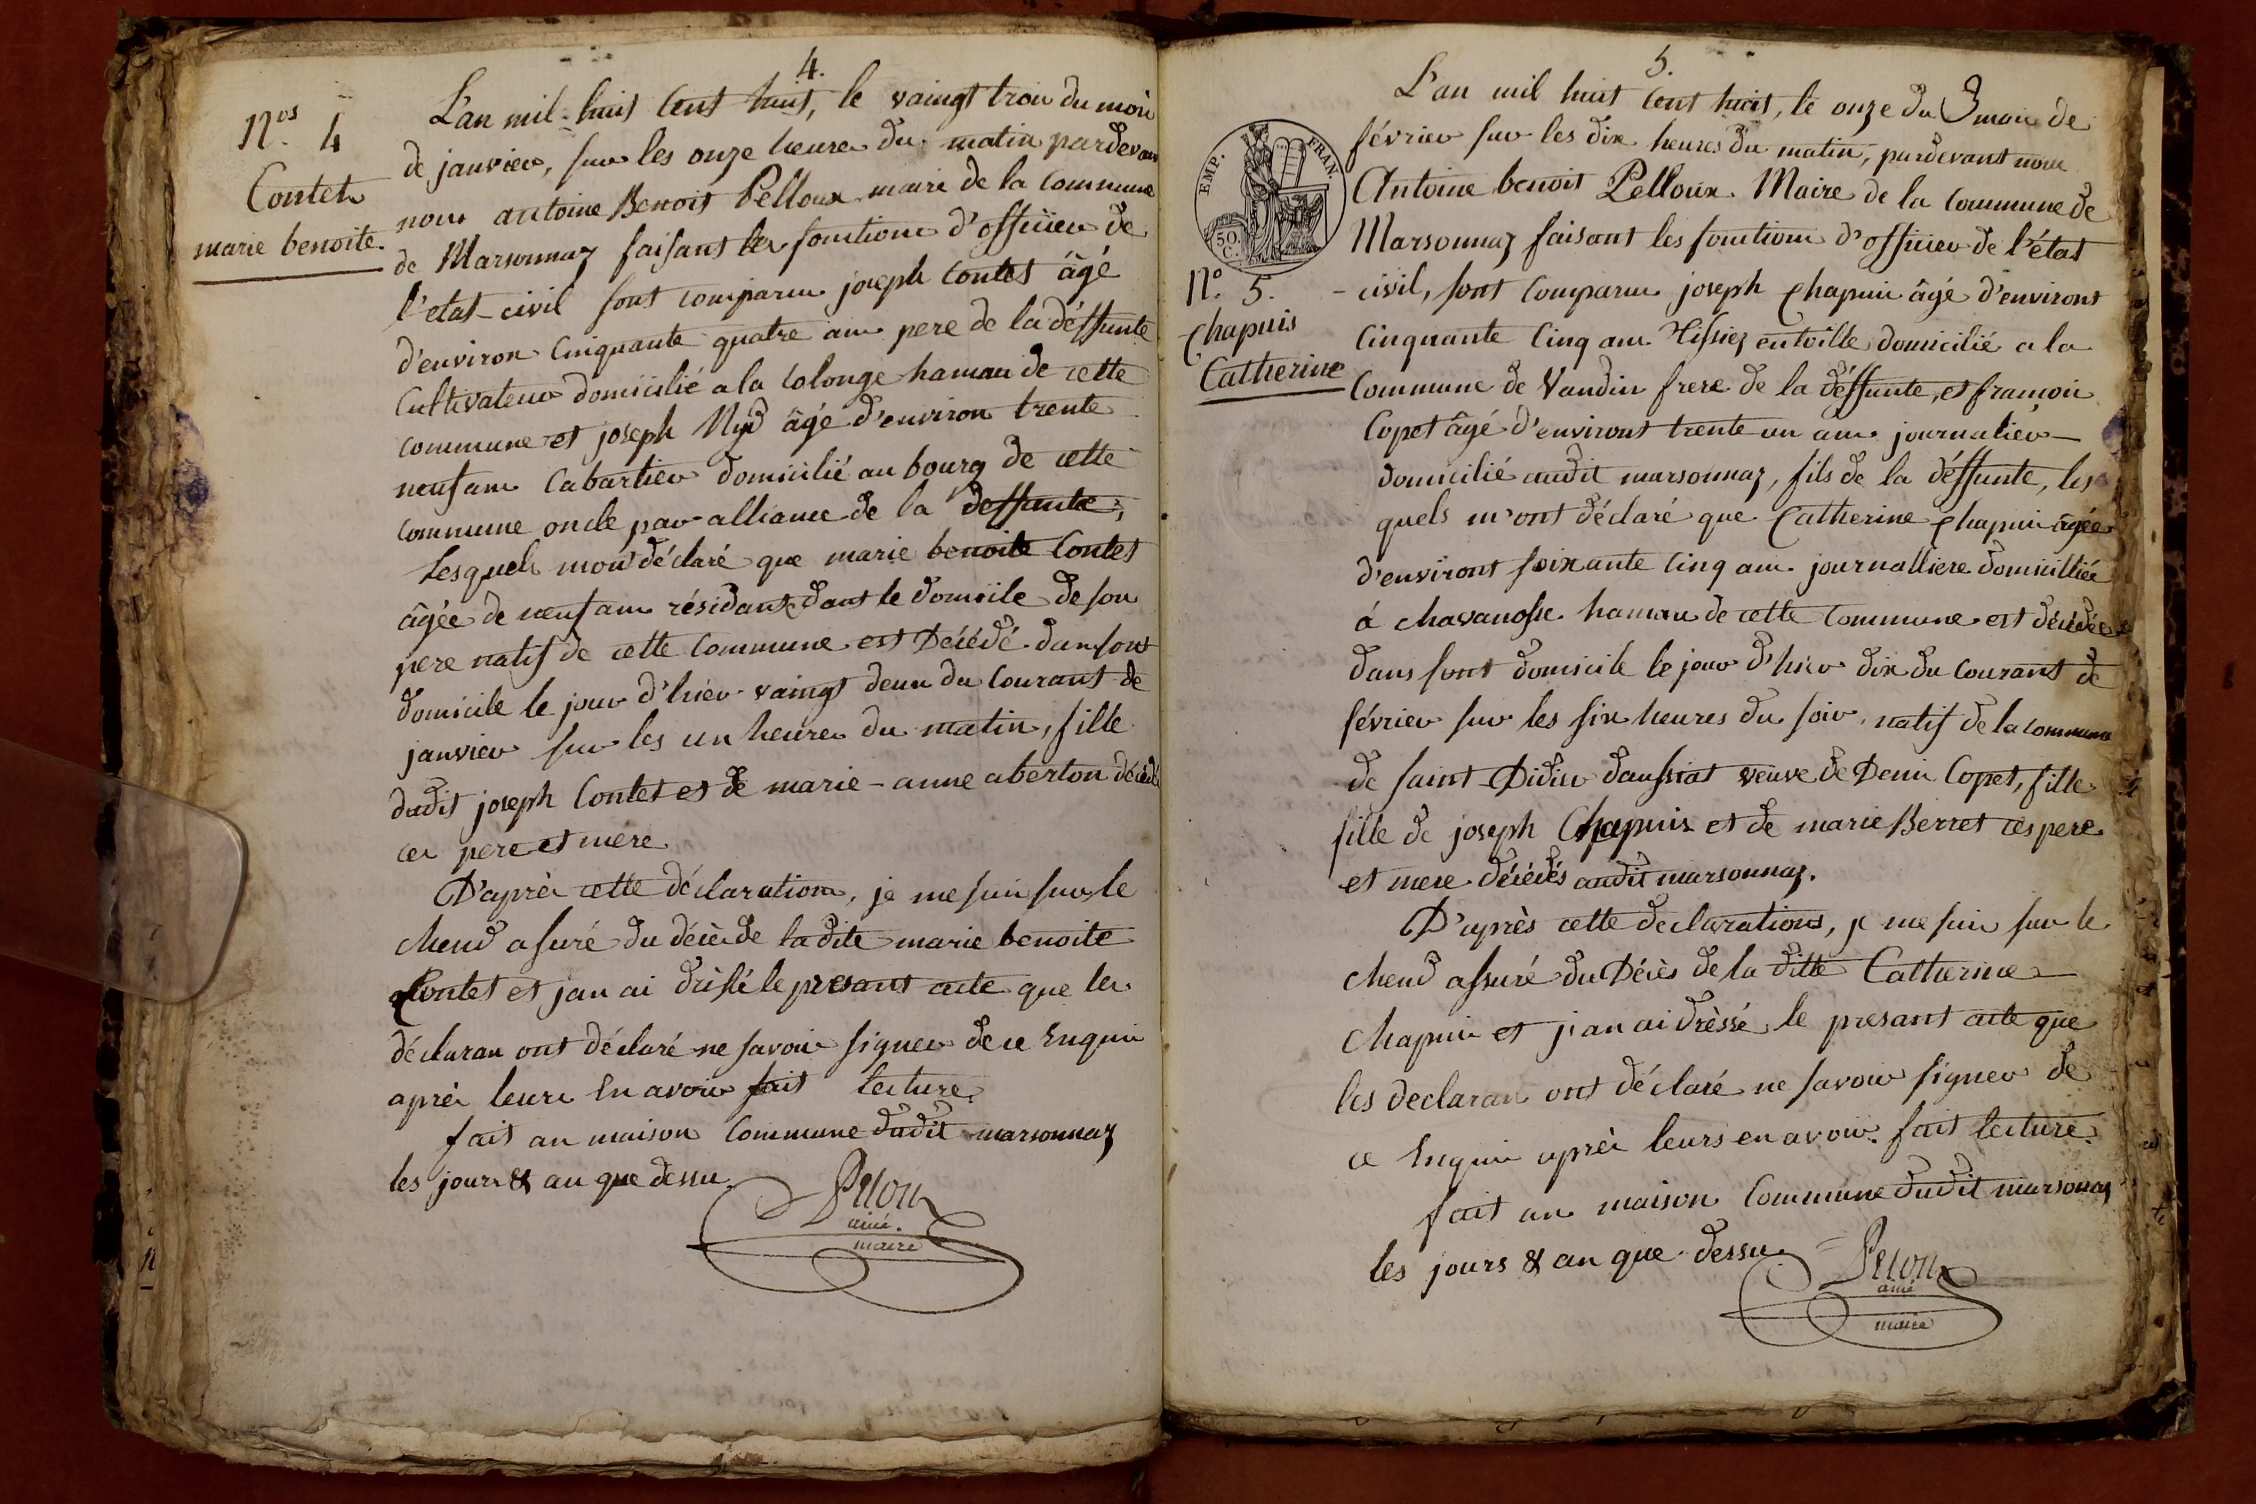 4.
Nos. 4
Contet
marie benoite.
L'an mil-huit cent huit, le vaingt troi du moi
de janvier, sur les onze heure du matin pardevan
nou antoine Benoit Pelloux maire de la Commune
de Marsonnaz faisant les fonctions d'officier de
l'etat-civil sont comparu joseph Contet âgé
d'environ Cinquante quatre an pere de la déffunte
Cultivateur domicilié a la Colonge hamau de cette
commune et joseph Nyd âgé d'environ trente
neuf an Cabartier domicilié au bourg de cette
commune oncle par alliance de la deffunte;
Lesquels mon déclaré que marie benoite Contet
âgée de neuf an résidant dant le domicile de son
pere natif de cette Commune est Décédé dan sont
domicile le jour d'hier vaingt deux du Courant de
janvier sur les un heure du matin, fille
dudit joseph Contet et de marie-anne aberton décédé
ces pere et mere
D'aprèr cette déclaration, je me suis sur le
cheud asuré du décède la dite marie benoite
Contet et jan ai drésé le presant acte que les
déclaran ont déclaré ne savoir signer de ce Enquis
aprèr leurs En avoir fait lecture
fait an maison Commune dudit marsonnaz
les jours & an que dessu.
Pelou
ainé.
maire
5.
EMP. FRAN.
50. C.
N°. 5.
Chapuis
Catherine
L'an mil huit cent huit, le onze du moi de
février sur les dix heures du matin, pardevant nou
Antoine benoit Pelloux Maire de la Commune de
Marsonnaz faisant les fonctions d'officier de l'état
- civil, sont Comparu joseph Chapui âgé d'environt
Cinquante Cinq an Tissiez entoille domicilié a la
Commune de Vandin frere de la déffunte, et françoi
Copet âgé d'environt trente un an journalier -
domicilié audit marsonnaz, fils de la déffunte, les
quels m'ont déclaré que Catherine Chapui âgée
d'environt soixante Cinq an journalliere domicilliée
á chavanosse hamau de cette Commune est décédée
dans sont domicile le jour d'hier dix du Courant de
février sur les six heures du soir, natif de la commune
de saint-Didier daussiat veuve de Deni Copet, fille
fille de joseph Chapuis et de marie Berret ces pere
et mere décédés audit marsonnaz.
D'après cette declarations, je me sui sur le
cheud assuré du Décès de la ditte Catherine
Chapui et j'an ai drèssé le presant acte que
les declaran ont déclaré ne savoir signer de
ce Enquis aprèr leurs en avoir fait lecture
fait an maison Commune dudit marsonaz
les jours & an que dessu.
Pelou
ainé
maire